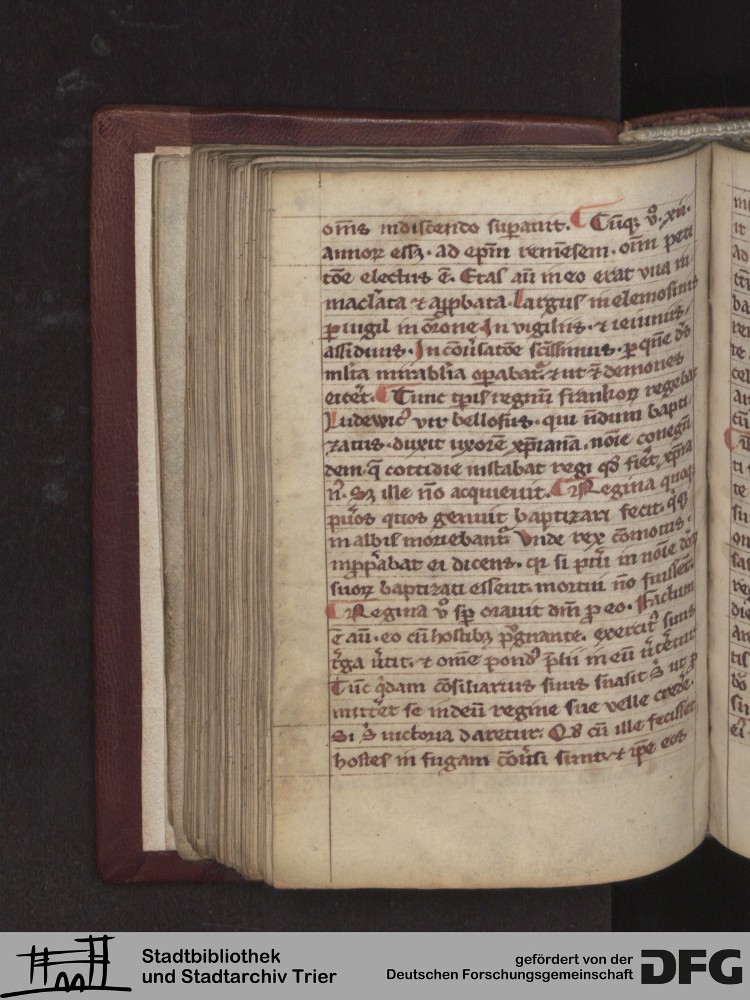 om̅s in discendo sup̅auit. Cu̅q; v̊. xii.
annoꝝ essꝫ. ad ep̅m reme̅sem. o̅im peti
to̅e electus e̅. Etas au̅ in eo erat vita in
maclata ⁊ app̅bata. largus in elemosinis
ꝑuigil in or̅one. In vigiliis. ⁊ ieiuniis.
assiduus. In co̅u̅sato̅e sc̅issimus. ꝑ que̅ d̅s
ml̅ta mirabl̅ia oꝑabat̅.
eicet̅. Tunc tp̅is regnu̅ frankoꝝ regebat
ludewic᷒ vir bellosus. qui no̅dum bapti
zatus. duxit uxore̅ xp̅iana̅. no̅ie conegu̅
dem. q̅ cottidie instabat regi qd̅ fiet̅. xp̅ia
n᷒. Sꝫ ille no̅ acquieuit. Regina quoqꝫ
pu̅os quos genuit baptizari fecit.
in albis moriebant᷑. Vnde rex co̅motus.
inp̅p̅abat ei dicens. qꝛ si pu̅i in no̅ie
suoꝝ baptizati essent. mortui no̅ fuissent.
Regina v̊ sp̅ orauit dm̅ ꝓ eo. Factum
e̅ au̅. eo cu̅ hostibꝫ pu̅gnante. exercit᷒ suus
t̅ga u̅tit. ⁊ om̅e pond᷒ p̅lii in eu̅
Tu̅c q̅dam co̅siliarius suus suasit s̅ ut ꝓ
mittet̅ se in deu̅ regine sue velle crede̅.
Si s̅ victoria daretur. Qd̅ cu̅ ille fecisset
hostes in fugam co̅u̅si sunt. ⁊ ip̅e eos
Stadtbibliothek
und Stadtarchiv Trier
gefördert von der
Deutschen Forschungsgemeinschaft
DFG